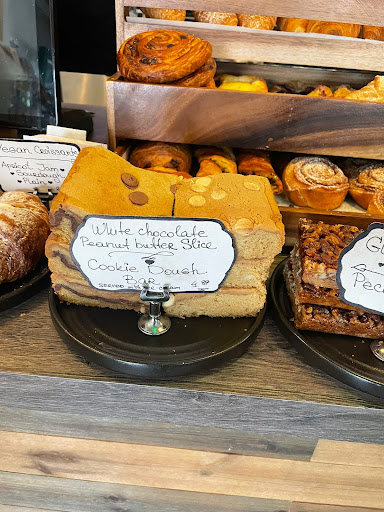 Vegan Croissants
Apricot Jam
Sourdough
Plain
White chocolate
Peanut butter Slice
Cookie Dough
Bar
4.
Pec